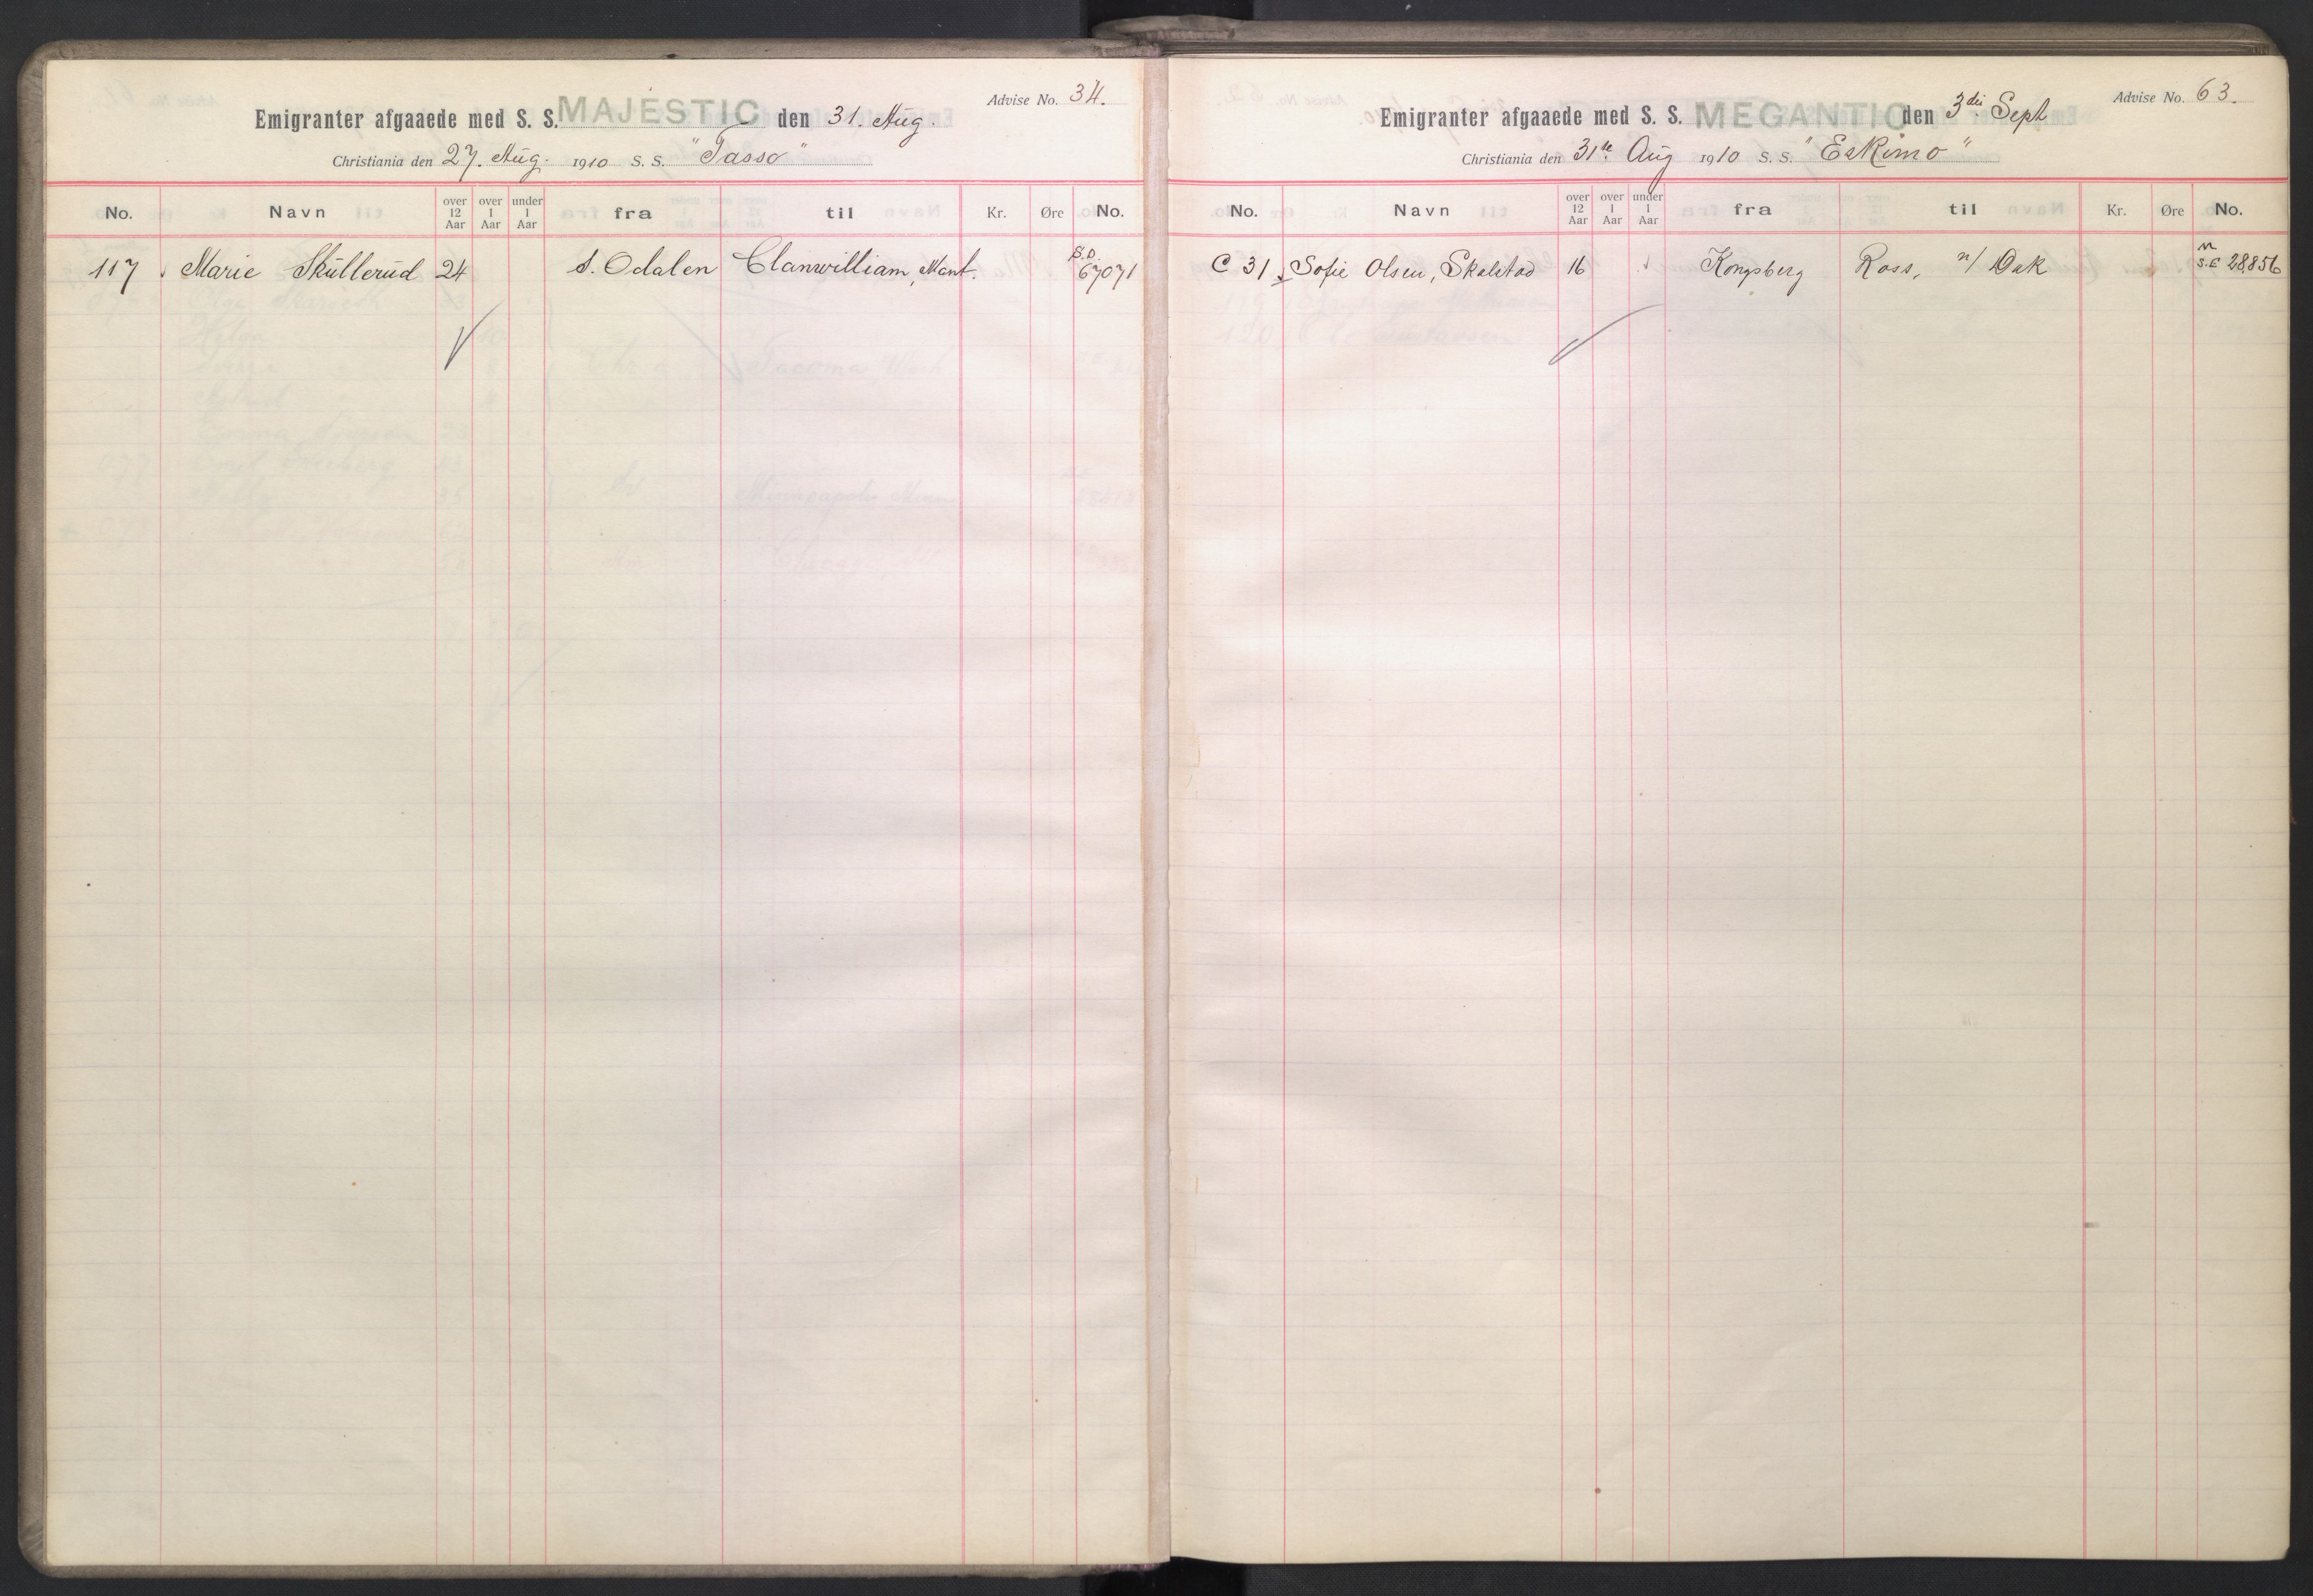 Advise No. 34.
Emigranter afgaaede med S. S. MAJESTIC den 31. Aug.
Christiania den 27. Aug. 1910 S. S. "Tasso"
No. Navn over 12 Aar over 1 Aar under 1 Aar fra til Kr. Øre No.
117 Marie Skullerud 24 S. Odalen Clanwilliam, Mant. S.D. 67071
Advise No. 63.
Emigranter afgaaede med S. S. MEGANTIC den 3die Sept
Christiania den 31te Aug 1910 S. S. "Eskimo"
No. Navn over 12 Aar over 1 Aar under 1 Aar fra til Kr. Øre No.
C 31 Sofie Olsen, Skalstad 16 Kongsberg Ross, n/ Dak n S.E 28856